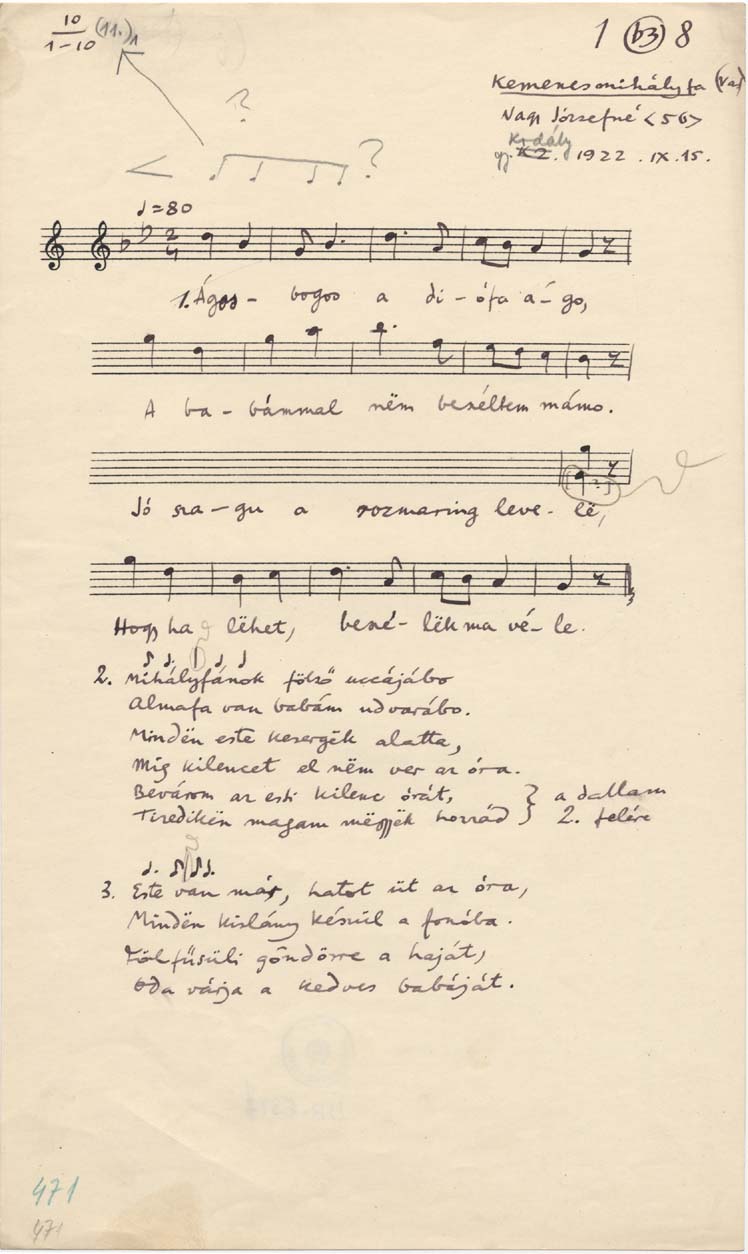 10 (11.)1
1-10
1 (b3) 8
Kemenesmihályfa (Vas)
Nagy Józsefné <56>
Kodály
gy. K Z. 1922. IX. 15.
?
< ?
♩=80
2
4
1. Ágos-bogos a di-ófa á-go,
A ba-bámmal nëm beszéltem mámo.
[?]
Jó sza-gu a rozmaring leve-lë,
Hogy ha lëhet, beszé-lëk ma vé-le.
2. Mihályfának fölső uccájábo
Almafa van babám udvarábo.
Mindën este kesergëk alatta,
Mig kilencet el nëm ver az óra.
Bevárom az esti kilenc órát, } a dallam
Tizedikën magam mëgyëk hozzád } 2. felére
3. Este van már, hatot üt az óra,
Mindën kislány készül a fonóba.
Fölfüsüli göndörre a haját,
Oda várja a kedves babáját.
471
471